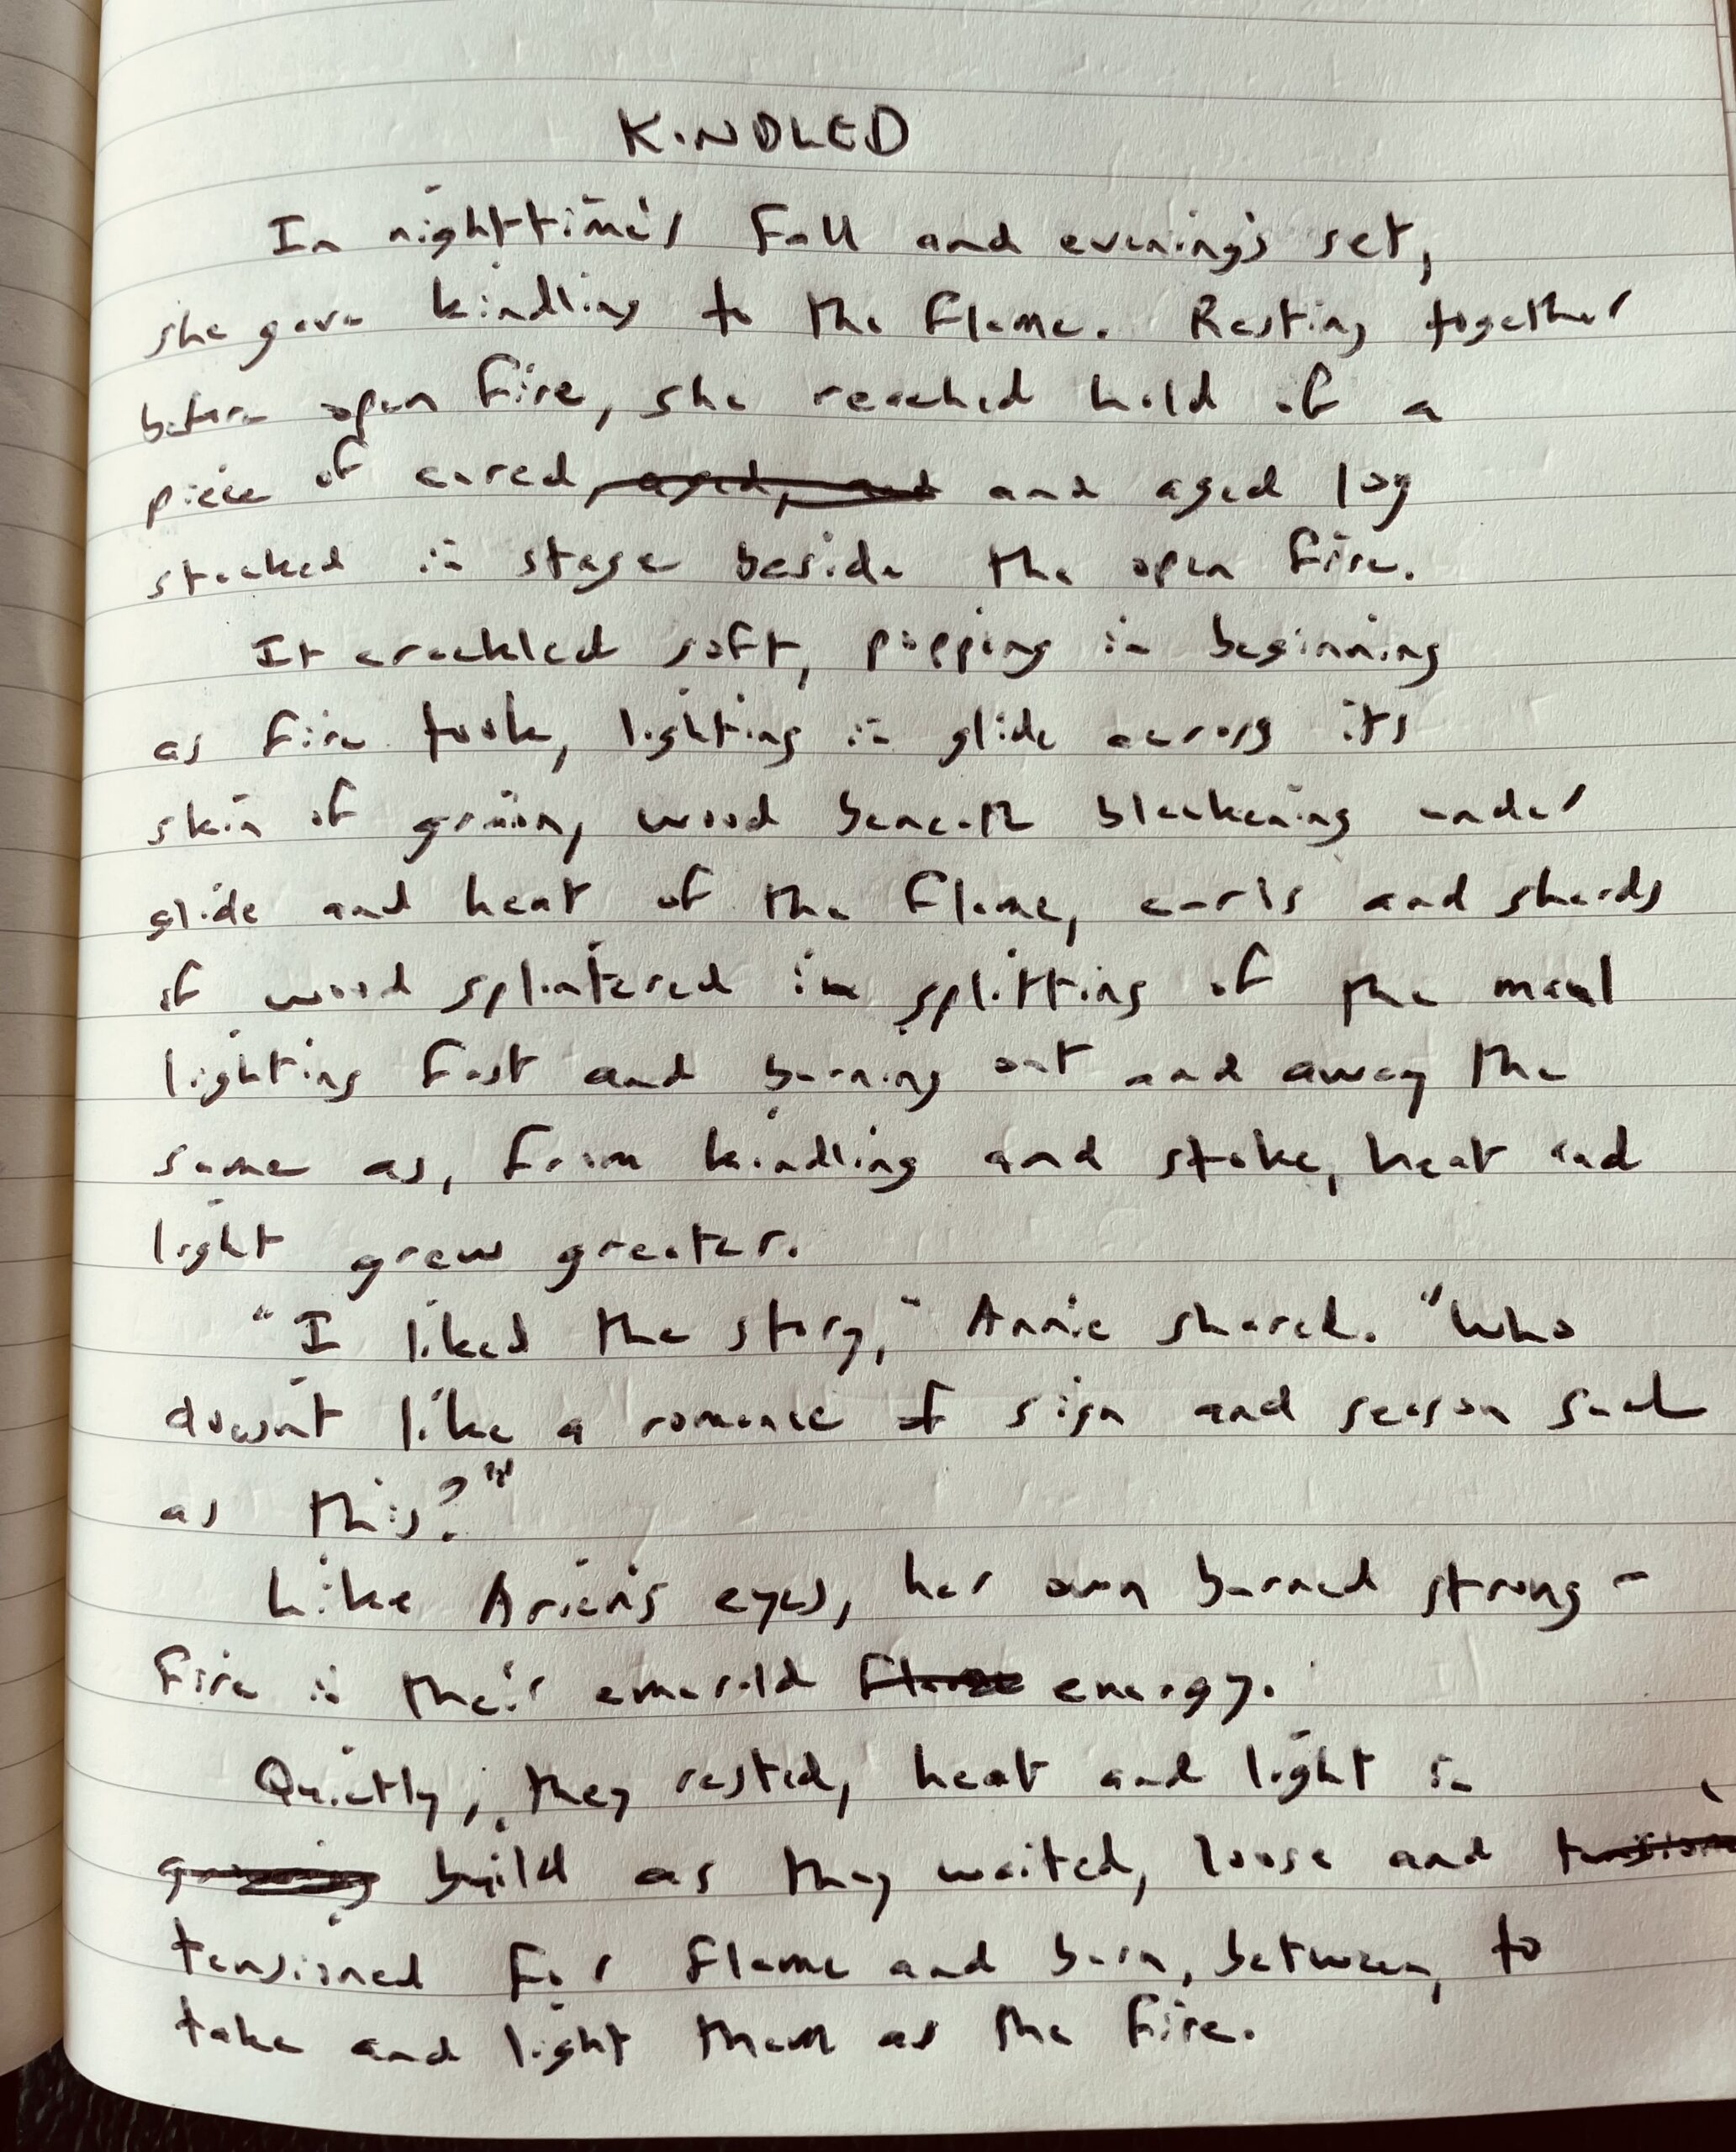 KINDLED
In nighttime's fall and evening's set,
she gave kindling to the flame. Resting together
before open fire, she reached hold of a
piece of cured, aged, and and aged log
stacked in stage beside the open fire.
It crackled soft, popping in beginning
as fire took, lighting in glide across its
skin of grain, wood beneath blackening under
glide and heat of the flame, curls and shards
of wood splintered in splitting of the maul
lighting fast and burning out and away the
same as, from kindling and stoke, heat and
light grew greater.
"I liked the story," Annie shared. "Who
doesn't like a romance of sign and season such
as this?"
Like Arien's eyes, her own burned strong -
fire in their emerald flame energy.
Quietly, they rested, heat and light in
growing build as they waited, loose and tension
tensioned for flame and burn, between, to
take and light them as the fire.